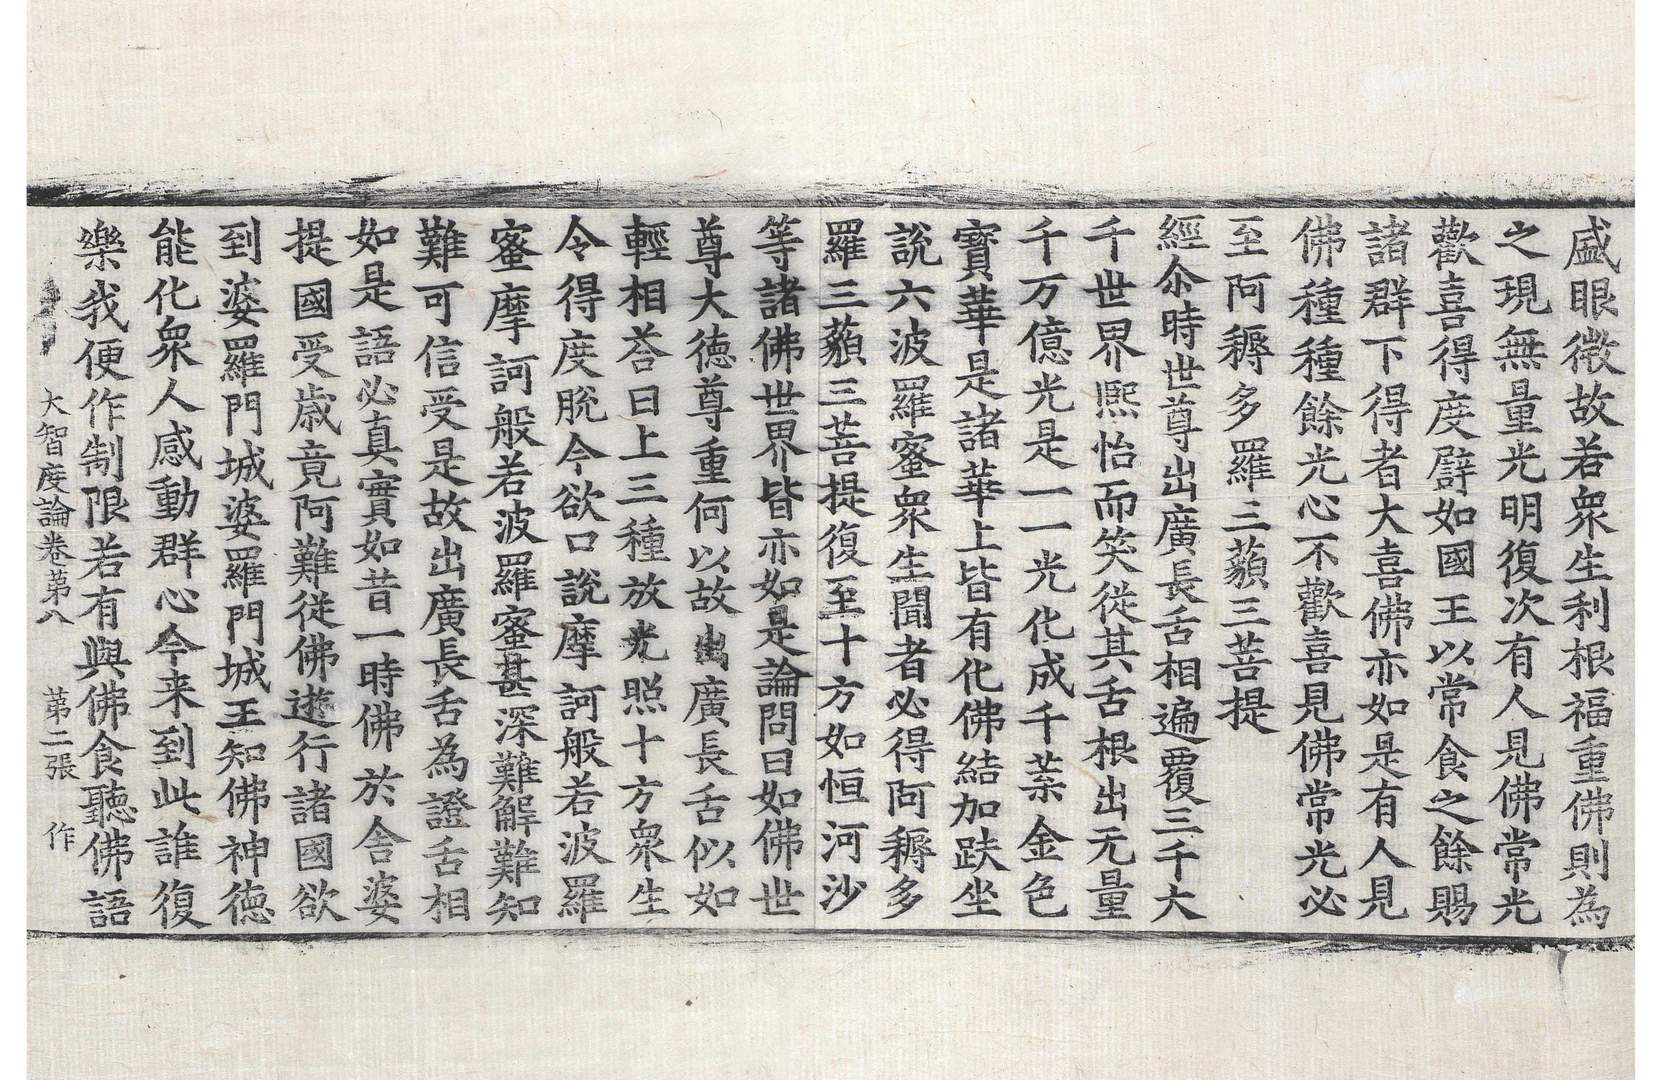 盛眼微故若衆生利根福重佛則為
之現無量光明復次有人見佛常光
歡喜得度譬如國王以常食之餘賜
諸群下得者大喜佛亦如是有人見
佛種種餘光心不歡喜見佛常光必
至阿耨多羅三藐三菩提
經尒時世尊出廣長舌相遍覆三千大
千世界熙怡而笑從其舌根出无量
千万億光是一一光化成千葉金色
寶華是諸華上皆有化佛結加趺坐
說六波羅蜜衆生聞者必得阿耨多
羅三藐三菩提復至十方如恒河沙
等諸佛世界皆亦如是論問曰如佛世
尊大德尊重何以故出廣長舌似如
輕相荅曰上三種放光照十方衆生
令得度脫今欲口說摩訶般若波羅
蜜摩訶般若波羅蜜甚深難解難知
難可信受是故出廣長舌為證舌相
如是語必真實如昔一時佛於舍婆
提國受歲竟阿難從佛遊行諸國欲
到婆羅門城婆羅門城王知佛神德
能化衆人感動群心今来到此誰復
樂我便作制限若有與佛食聽佛語
大智度論卷第八 第二張 作